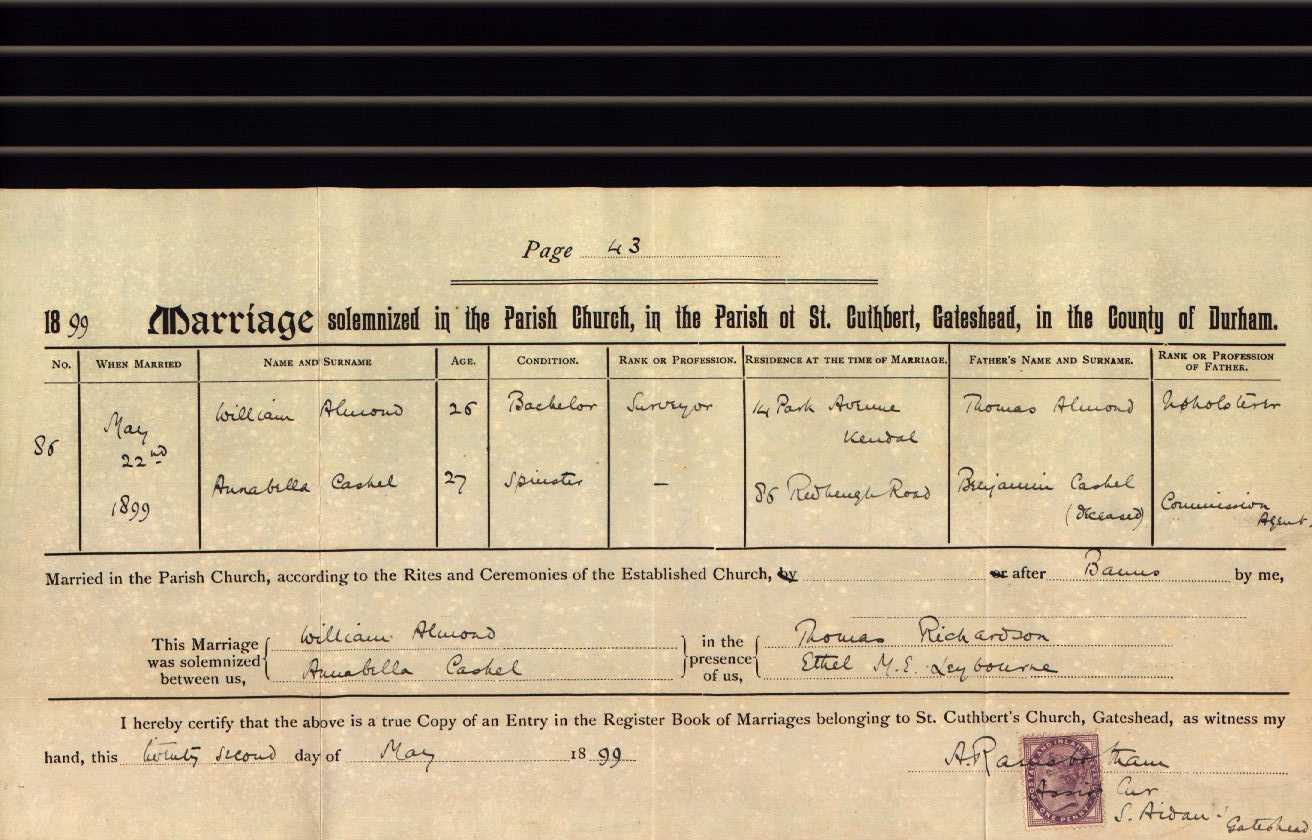 Page 43
1899 Marriage solemnized in the Parish Church, in the Parish of St. Cuthbert, Gateshead, in the County of Durham.
No. WHEN MARRIED NAME AND SURNAME AGE. CONDITION. RANK OR PROFESSION. RESIDENCE AT THE TIME OF MARRIAGE. FATHER'S NAME AND SURNAME. RANK OR PROFESSION OF FATHER.
86 May 22nd 1899
William Almond 26 Bachelor Surveyor 14 Park Avenue Kendal Thomas Almond Upholsterer
Annabella Cashel 27 Spinster — 86 Redheugh Road Benjamin Cashel (deceased) Commission Agent.
Married in the Parish Church, according to the Rites and Ceremonies of the Established Church, by or after Banns by me,
This Marriage was solemnized between us, William Almond Annabella Cashel in the presence of us, Thomas Richardson Ethel M. E. Leybourne
I hereby certify that the above is a true Copy of an Entry in the Register Book of Marriages belonging to St. Cuthbert's Church, Gateshead, as witness my
hand, this twenty second day of May 1899 A. Ramsbottham
Assist Cur
S. Aidan's Gateshead
POSTAGE AND INLAND REVENUE
ONE PENNY